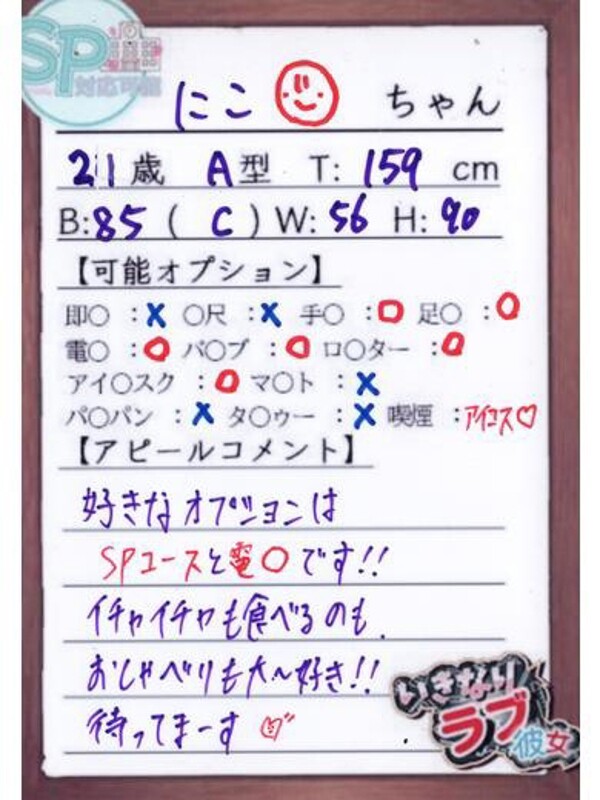 SP
対応可能
にこ ちゃん
21歳 A型 T: 159 cm
B:85 ( C ) W: 56 H: 90
【可能オプション】
即〇 :X 〇尺 :X 手〇 :〇 足〇 :〇
電〇 :〇 バ〇ブ :〇 ロ〇ター :〇
アイ〇スク :〇 マ〇ト :X
パ〇パン :X タ〇ゥー :X 喫煙 :アイコス♡
【アピールコメント】
好きなオプションは
SPコースと電〇です!!
イチャイチャも食べるのも
おしゃべりも大〜好き!!
待ってまーす
いきなり
ラブ彼女